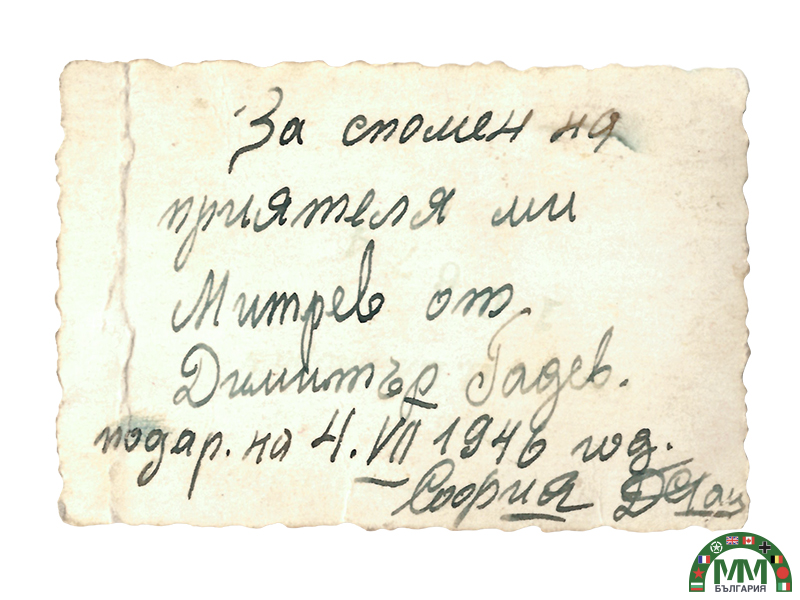 За спомен на
приятеля ми
Митрев от
Димитър Гадев.
подар. на 4.VII 1946 год.
София
MM
БЪЛГАРИЯ